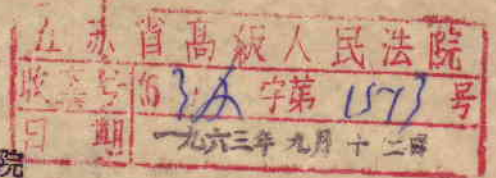 江苏省高级人民法院
收文号 字第1573号
日期 一九六三年九月十二日
院